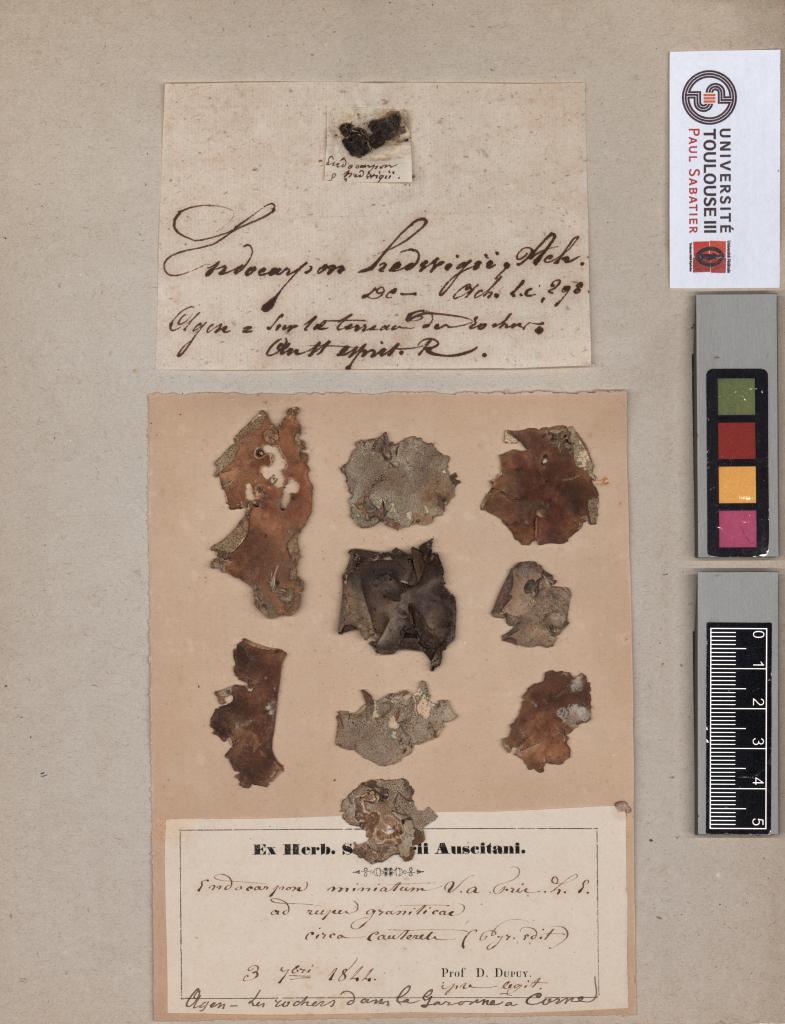 Endocarpon
hedwigii.
Endocarpon hedwigii, Ach.
DC - Ach. l.c. 298.
Agen = sur le terreau des rochers
esprit. R.
UNIVERSITÉ
TOULOUSE III
PAUL SABATIER
0 1 2 3 4 5
Ex Herb. S rii Auscitani.
Endocarpon miniatum V. a Frie. L. E.
ad rupes graniticas
circa Cauterets
3 7bri 1844. Prof D. DUPUY.
ipse legit.
Agen - les rochers dans la Garonne à Corne